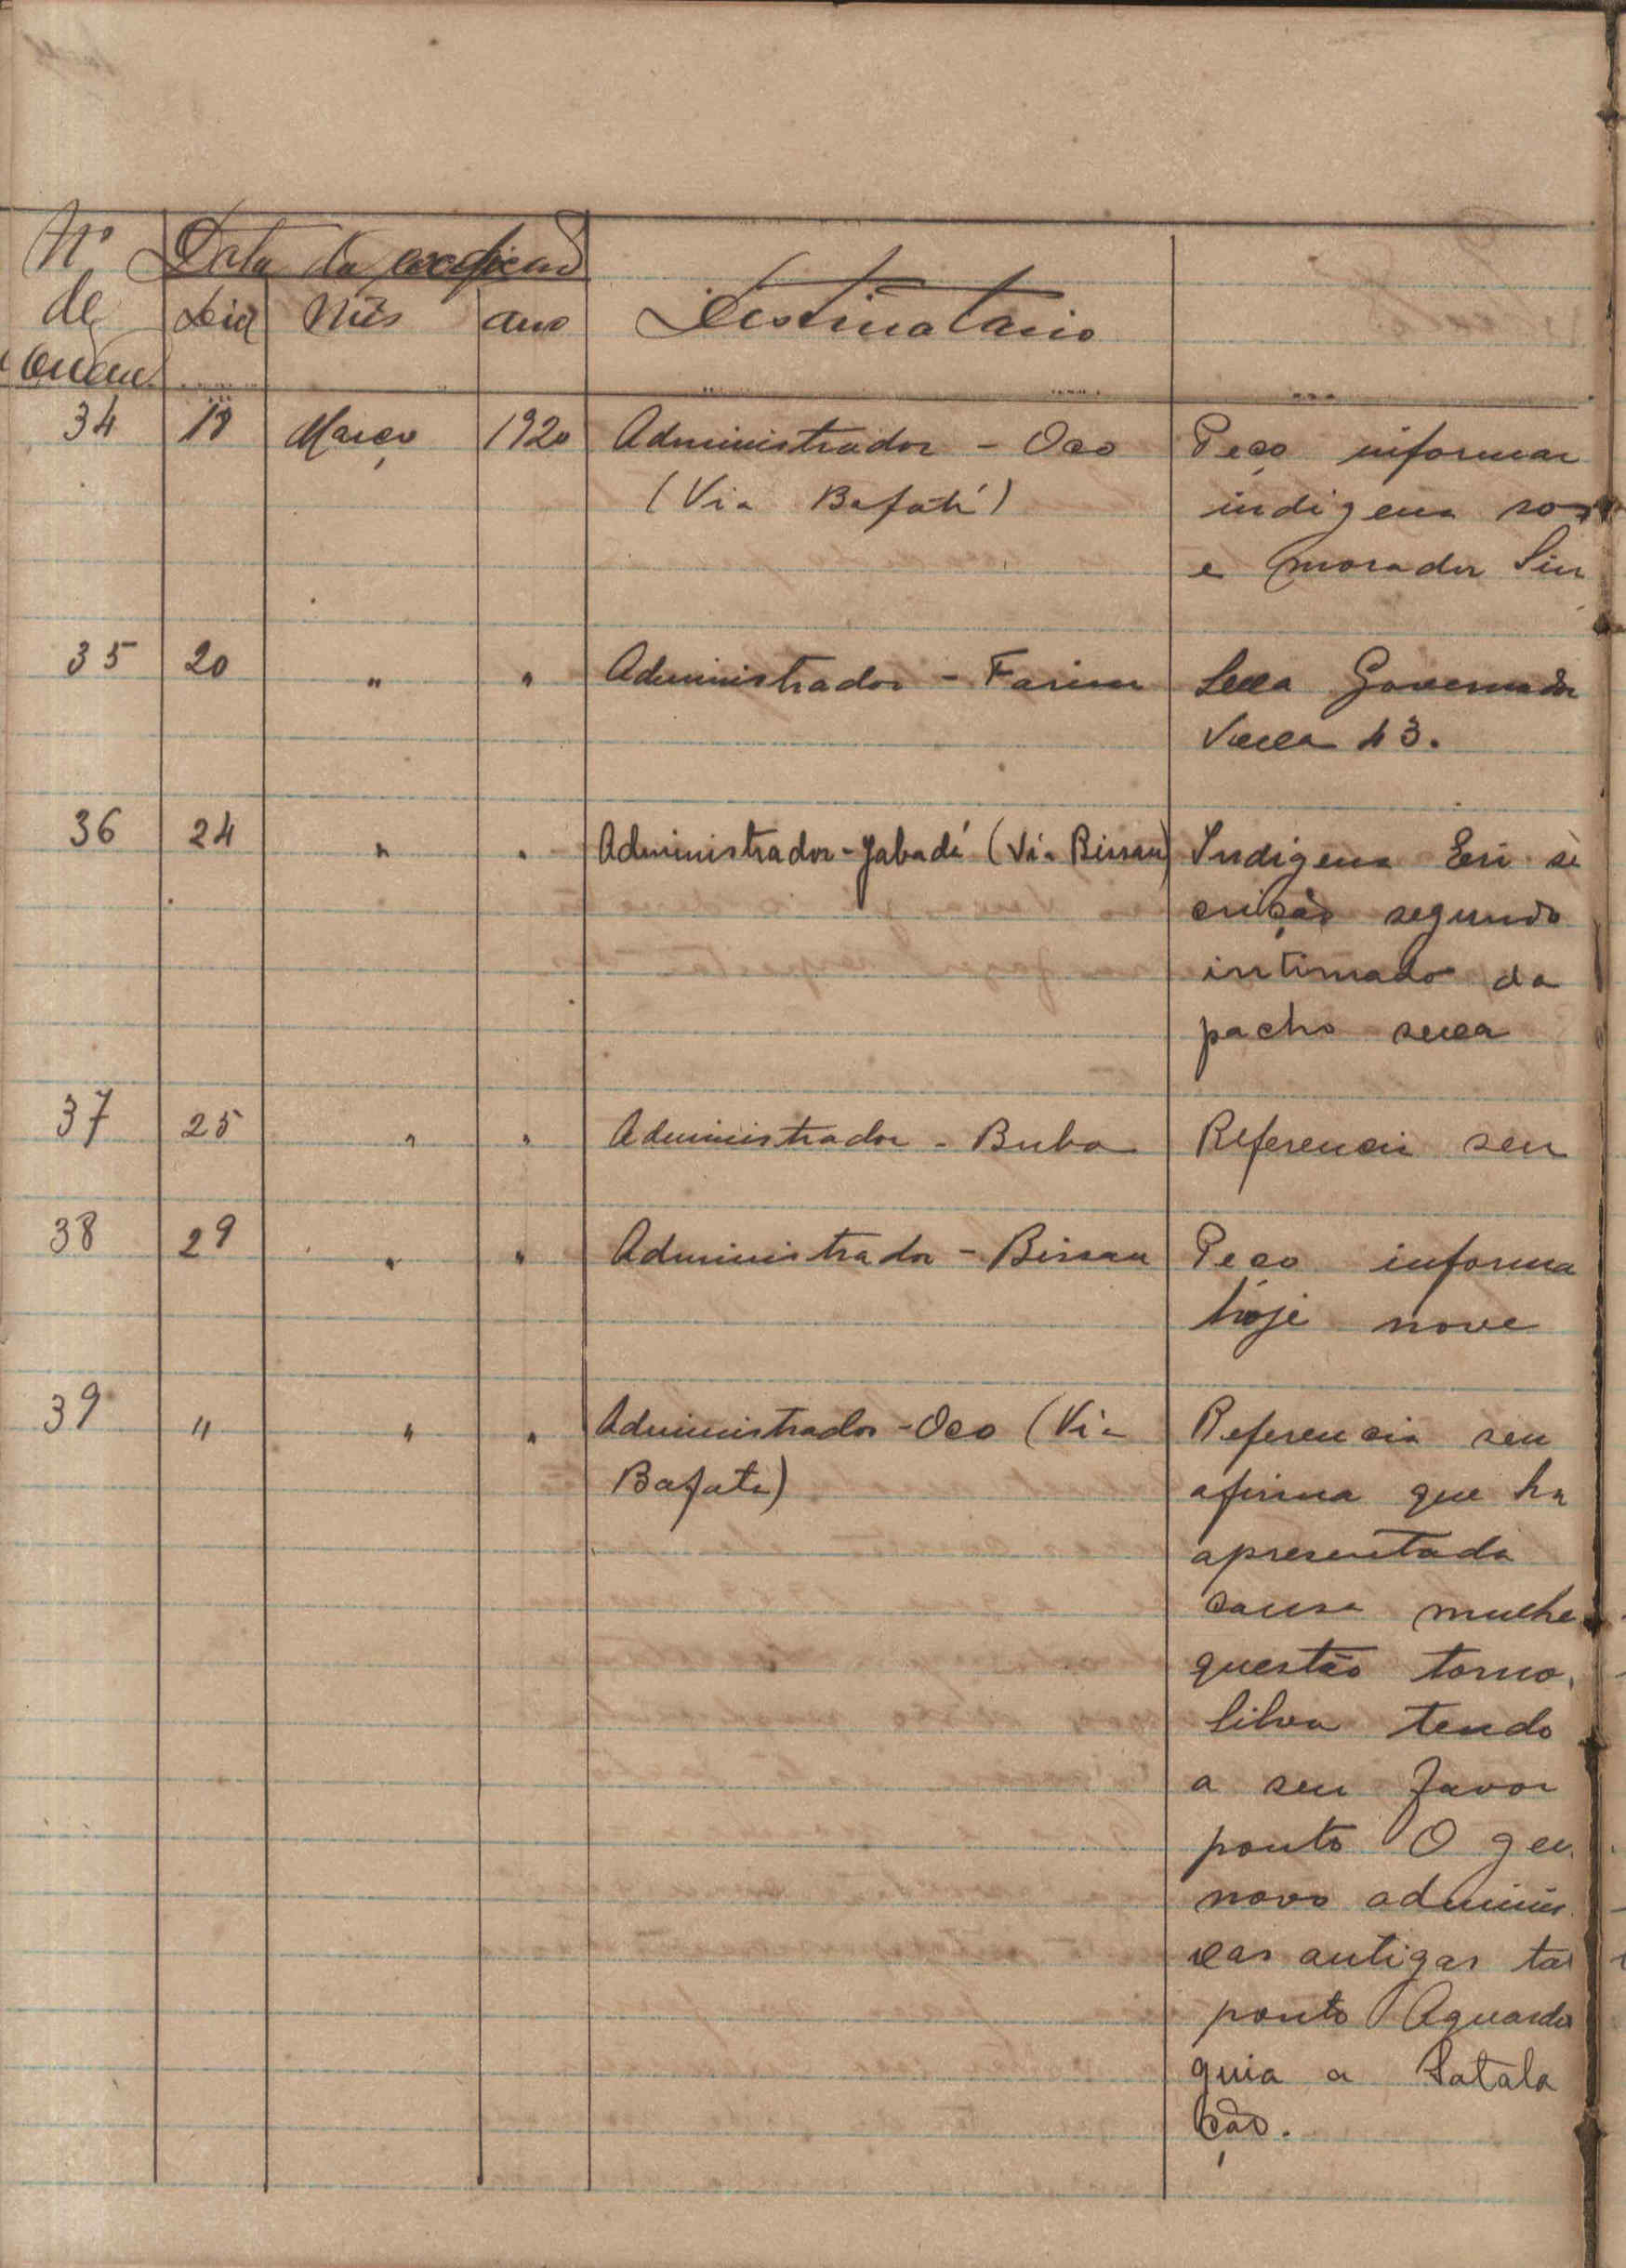 Nº de ordem
Data da expedição
Dia Mês ano
Destinatario
34 18 Março 1920 Administrador - Oco Peço informar
(Via Bafatá) indigena
e morador
35 20 " " Administrador - Farim Governador
43.
36 24 " " Administrador - Jabadá (Via Bissau) Indigena
segundo
intimado da
pacho
37 25 " " Administrador - Buba Referencia seu
38 29 " " Administrador - Bissau Peço informa
hoje nove
39 " " " Administrador - Oco (Via Referencia seu
Bafata) afirma que ha
apresentada
causa mulhe
questão torno
Silva tendo
a seu favor
ponto O
novo adminis
cas antigas tas
ponto Aguarda
guia a
ção.